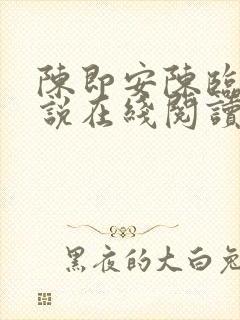 陳即安陳臨
說在綫閱讀
黑夜的大白兔